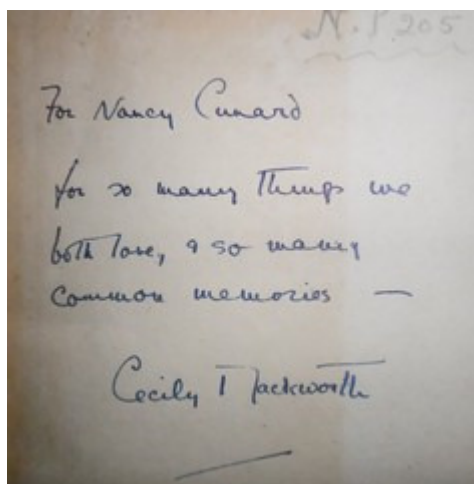 N.P. 205
For Nancy Cunard
for so many things we
both love, & so many
common memories —
Cecily Mackworth